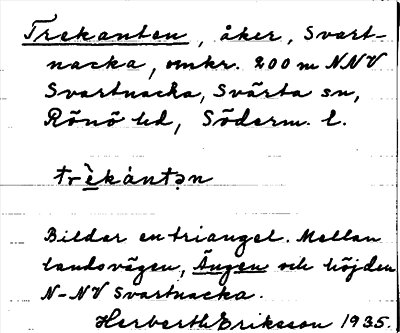 Trekanten, åker, Svart-
nacka, omkr. 200 m NNV
Svartnacka, Svärta sn,
Rönö hd, Söderm. l.
trè̱kántən
Bildar en triangel. Mellan
landsvägen, Ängen och höjden
N-NV Svartnacka.
Herbert Eriksson 1935.